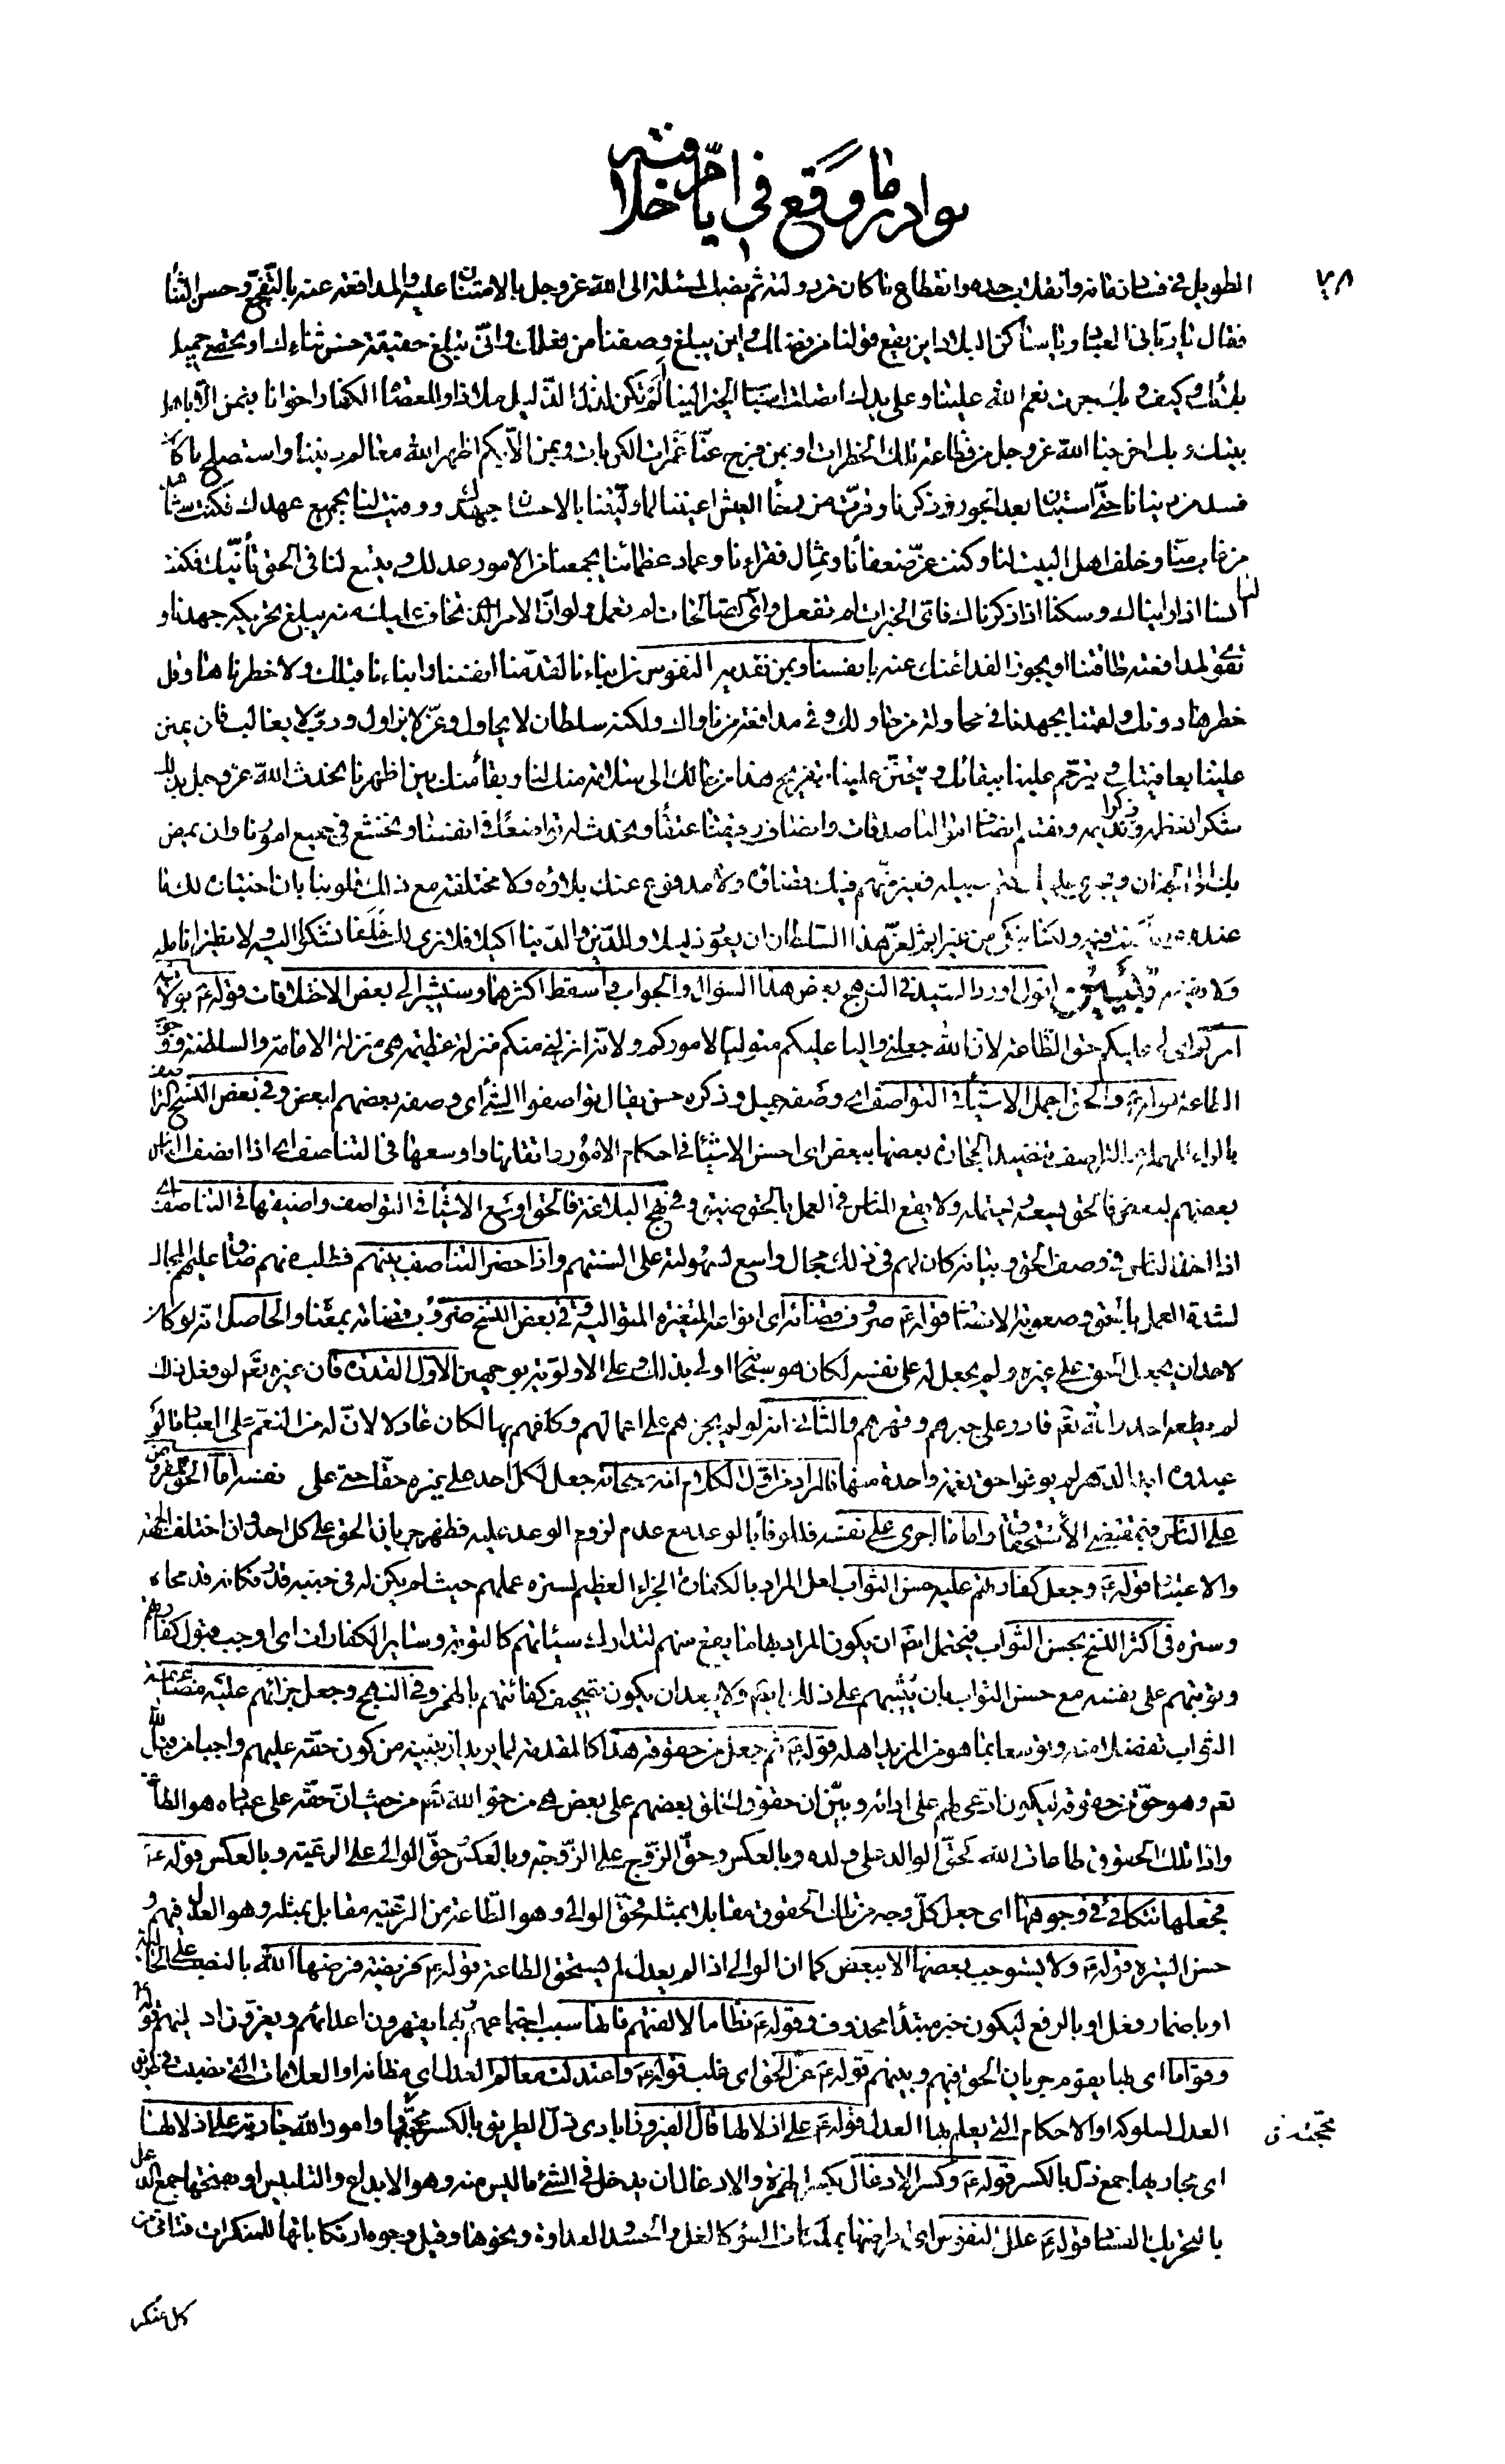 نوادر ما وقع في ايام خلافته
٧٨
الطويل في فساد زمانه وانقلاب جده وانقطاع ما كان من دولته ثم نصب المسئلة الى الله عز وجل بالامتنان عليه والمدافعة عنه بالتفجع وحسن الثناء
فقال يا رباني العباد ويا ساكن البلاد اين يقع قولنا من فضلك واين يبلغ وصفنا من فعلك وانى نبلغ حقيقة حسن ثنائك او نحصي جميل
بلائك وكيف وبك جرت نعم الله علينا وعلى يدك اتصلت اسباب الخير الينا الم تكن لذل الذليل ملاذا وللعصاة الكفار اخوانا فبمن الا باهل
بيتك وبك اخرجنا الله عز وجل من فظاعة تلك الخطرات او بمن فرج عنا غمرات الكربات وبمن الا بكم اظهر الله معالم ديننا واستصلح ما كان
فسد من دنيانا حتى استبان بعد الجور ذكرنا وقرت من رخاء العيش اعيننا لما وليتنا بالاحسان جهدك ووفيت لنا بجميع عهدك فكنت شاهد
من غاب منا وخلف اهل البيت لنا وكنت عز ضعفائنا وثمال فقرائنا وعماد عظمائنا يجمعنا من الامور عدلك ويتسع لنا في الحق تأنيك فكنت
لنا انسا اذا رايناك وسكنا اذا ذكرناك فاي الخيرات لم تفعل واي الصالحات لم تعمل ولو ان الامر الذي نخاف عليك منه يبلغ تحريكه جهدنا و
تقوى لمدافعته طاقتنا او يجوز الفداء عنك منه بانفسنا وبمن نفديه النفوس من ابنائنا لقدمنا انفسنا وابناءنا قبلك ولاخطرناها وقل
خطرها دونك ولقمنا بجهدنا في محاولة من حاولك وفي مدافعة من ناواك ولكنه سلطان لا يحاول وعز لا يزاول ورب لا يغالب فان يمنن
علينا بعافيتك ويترحم علينا ببقائك ويتحنن علينا بتفريج هذا من حالك الى سلامة منك لنا وبقاء منك بين اظهرنا نحدث الله عز وجل بذلك
شكرا نعظمه وذكرا نديمه ونقسم انصاف اموالنا صدقات وانصاف رقيقنا عتقاء ونحدث له تواضعا في انفسنا ونخشع في جميع امورنا وان يمض
بك الى الجنان ويجري عليك حتم سبيله فغير متهم فيك قضاؤه ولا مدفوع عنك بلاؤه ولا مختلفة مع ذلك قلوبنا بان اختياره لك ما
عنده على ما كنت فيه ولكنا نبكي من غير اثم لعز هذا السلطان ان يعود ذليلا وللدين والدنيا اكيلا فلا نرى لك خلفا نشكو اليه ولا نظيرا نامله
ولا نقيمه تبيين اقول اورد السيد في النهج بعض هذا السؤال والجواب واسقط اكثرهما وسنشير الى بعض الاختلافات قوله ع بولاية
امركم اي لي عليكم حق الطاعة لان الله جعلني واليا عليكم متوليا لاموركم ولانه انزلني منكم منزلة عظيمة هي منزلة الامامة والسلطنة ووجوب
الطاعة قوله ع والحق اجمل الاشياء في التواصف اي وصفه جميل وذكره حسن يقال تواصفوا الشيء اي وصفه بعضهم لبعض وفي بعض النسخ التراصف
بالراء المهملة والتراصف تنضيد الحجارة بعضها ببعض اي احسن الاشياء في احكام الامور واتقانها واوسعها في التناصف اي اذا انصف الناس
بعضهم لبعض فالحق يسعه ويحتمله ولا يقع الناس في العمل بالحق ضيق وفي نهج البلاغة فالحق اوسع الاشياء في التواصف واضيقها في التناصف اي
اذا اخذ الناس في وصف الحق وبيانه كان لهم في ذلك مجال واسع لسهولته على السنتهم واذا حضر التناصف بينهم فطلب منهم ضاق عليهم المجال
لشدة العمل بالحق وصعوبة الانصاف قوله ع صروف قضائه اي انواعه المتغيرة المتوالية وفي بعض النسخ ضروب قضائه بمعناه والحاصل انه لو كان
لاحد ان يجعل الحق على غيره ولم يجعل له على نفسه لكان هو سبحانه اولى بذلك وعلى الاولوية بوجهين الاول القدرة فان غيره تعالى لو فعل ذلك
لم يطعه احد والله تعالى قادر على جبرهم وقهرهم والثاني انه لو لم يجزهم على اعمالهم وكلفهم بها لكان عادلا لان له من النعم على العباد ما لو
عبدوه ابد الدهر لم يوفوا حق نعمة واحدة منها فالمراد من اول الكلام انه سبحانه جعل لكل احد على غيره حقا حتى على نفسه اما الحق المفروض
على الناس فبمقتضى الاستحقاق واما ما اجرى على نفسه فللوفاء بالوعد مع عدم لزوم الوعد عليه فظهر جريان الحق على كل احد وان اختلف الجهة
والاعتبار قوله ع وجعل كفارتهم عليه حسن الثواب لعل المراد بالكفارة الجزاء العظيم لستره عملهم حيث لم يكن له في جنبه قدر فكانه قد محاه
وستره وفي اكثر النسخ بحسن الثواب فيحتمل ايضا ان يكون المراد بها ما يقع منهم لتدارك سيئاتهم كالتوبة وسائر الكفارات اي اوجب قبول كفارتهم
وتوبتهم على نفسه مع حسن الثواب بان يثيبهم على ذلك ايضا ولا يبعد ان يكون تصحيف كفائتهم بالهمز وفي النهج وجعل جزائهم عليه مضاعفة
الثواب تفضلا منه وتوسعا بما هو من المزيد اهله قوله ع ثم جعل من حقوقه هذا كالمقدمة لما يريد ان يبينه من كون حقه عليهم واجبا من قبل الله
تعالى وهو حق من حقوقه ليكون ادعى لهم على ادائه وبين ان حقوق الخلق بعضهم على بعض هي من حق الله تعالى من حيث ان حقه على عباده هو الطاعة
واداء تلك الحقوق طاعات الله كحق الوالد على ولده وبالعكس وحق الزوج على الزوجة وبالعكس وحق الوالي على الرعية وبالعكس قوله ع
فجعلها تتكافى في وجوهها اي جعل كل وجه من تلك الحقوق مقابلا بمثله فحق الوالي وهو الطاعة من الرعية مقابل بمثله وهو العدل فيهم و
حسن السيرة قوله ع ولا يستوجب بعضها الا ببعض كما ان الوالي اذا لم يعدل لم يستحق الطاعة قوله ع فريضة فرضها الله بالنصب على الحالية
او باضمار فعل او بالرفع ليكون خبر مبتدأ محذوف وقوله ع نظاما لالفتهم فانها سبب اجتماعهم وبها يقهرون اعدائهم ويعزون اديانهم قوله ع
وقواما اي بها يقوم جريان الحق فيهم وبينهم قوله ع عز الحق اي غلب قوله ع واعتدلت معالم العدل اي مظانه او العلامات التي نصبت في طريق
العدل لسلوكه او الاحكام التي يعلم بها العدل قوله ع على اذلالها قال الفيروزابادي ذل الطريق بالكسر محجته وامور الله جارية على اذلالها
محجته ن
اي مجاريها جمع ذل بالكسر قوله ع وكثر الادغال بكسر الهمزة والادغال ان يدخل في الشيء ما ليس منه وهو الابداع والتلبيس او بفتحها جمع الدغل
بالتحريك الفساد قوله ع علل النفوس اي امراضها بملكات السوء كالغل والحسد والعداوة ونحوها وقيل وجوه ارتكاباتها للمنكرات فتاتي من
كل منكر